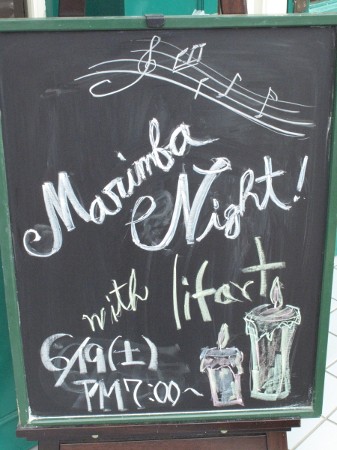 Marimba
Night!
with lifart
6/19(土)
PM7:00~